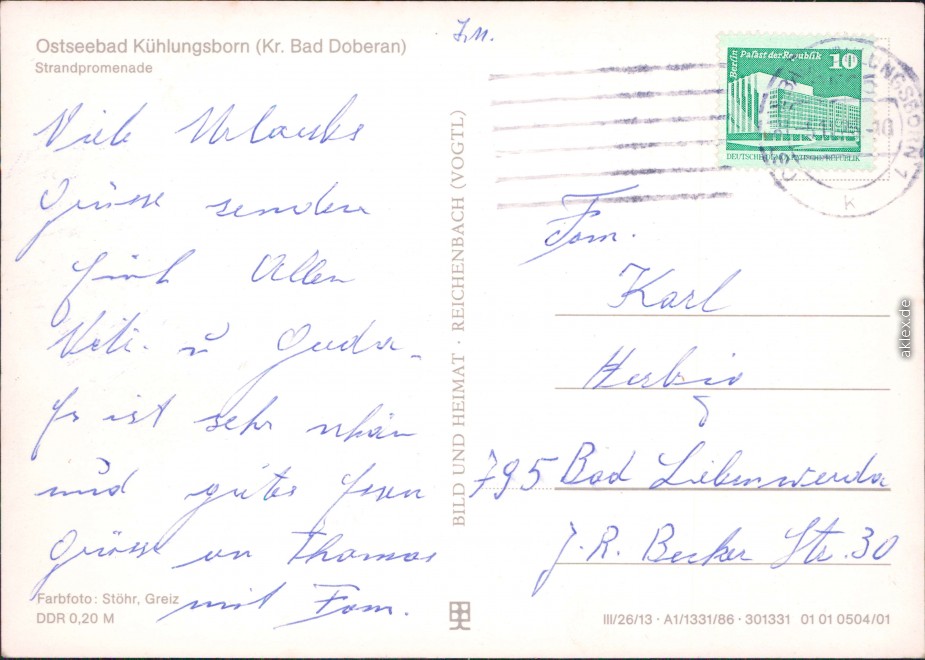 Ostseebad Kühlungsborn (Kr. Bad Doberan)
Strandpromenade
Viele Urlaubs
Grüsse senden
Euch Allen
u
Es ist sehr schön
und gutes Essen
Grüsse an Thomas
mit Fam.
Farbfoto: Stöhr, Greiz
DDR 0,20 M
BILD UND HEIMAT · REICHENBACH (VOGTL)
Berlin Palast der Republik 10
DEUTSCHE DEMOKRATISCHE REPUBLIK
KÜHLUNGSBORN 1
k
Fam.
Karl
Herbig
795 Bad Liebenwerda
J.R. Becher Str. 30
III/26/13 · A1/1331/86 · 301331 01 01 0504/01
aklex.de